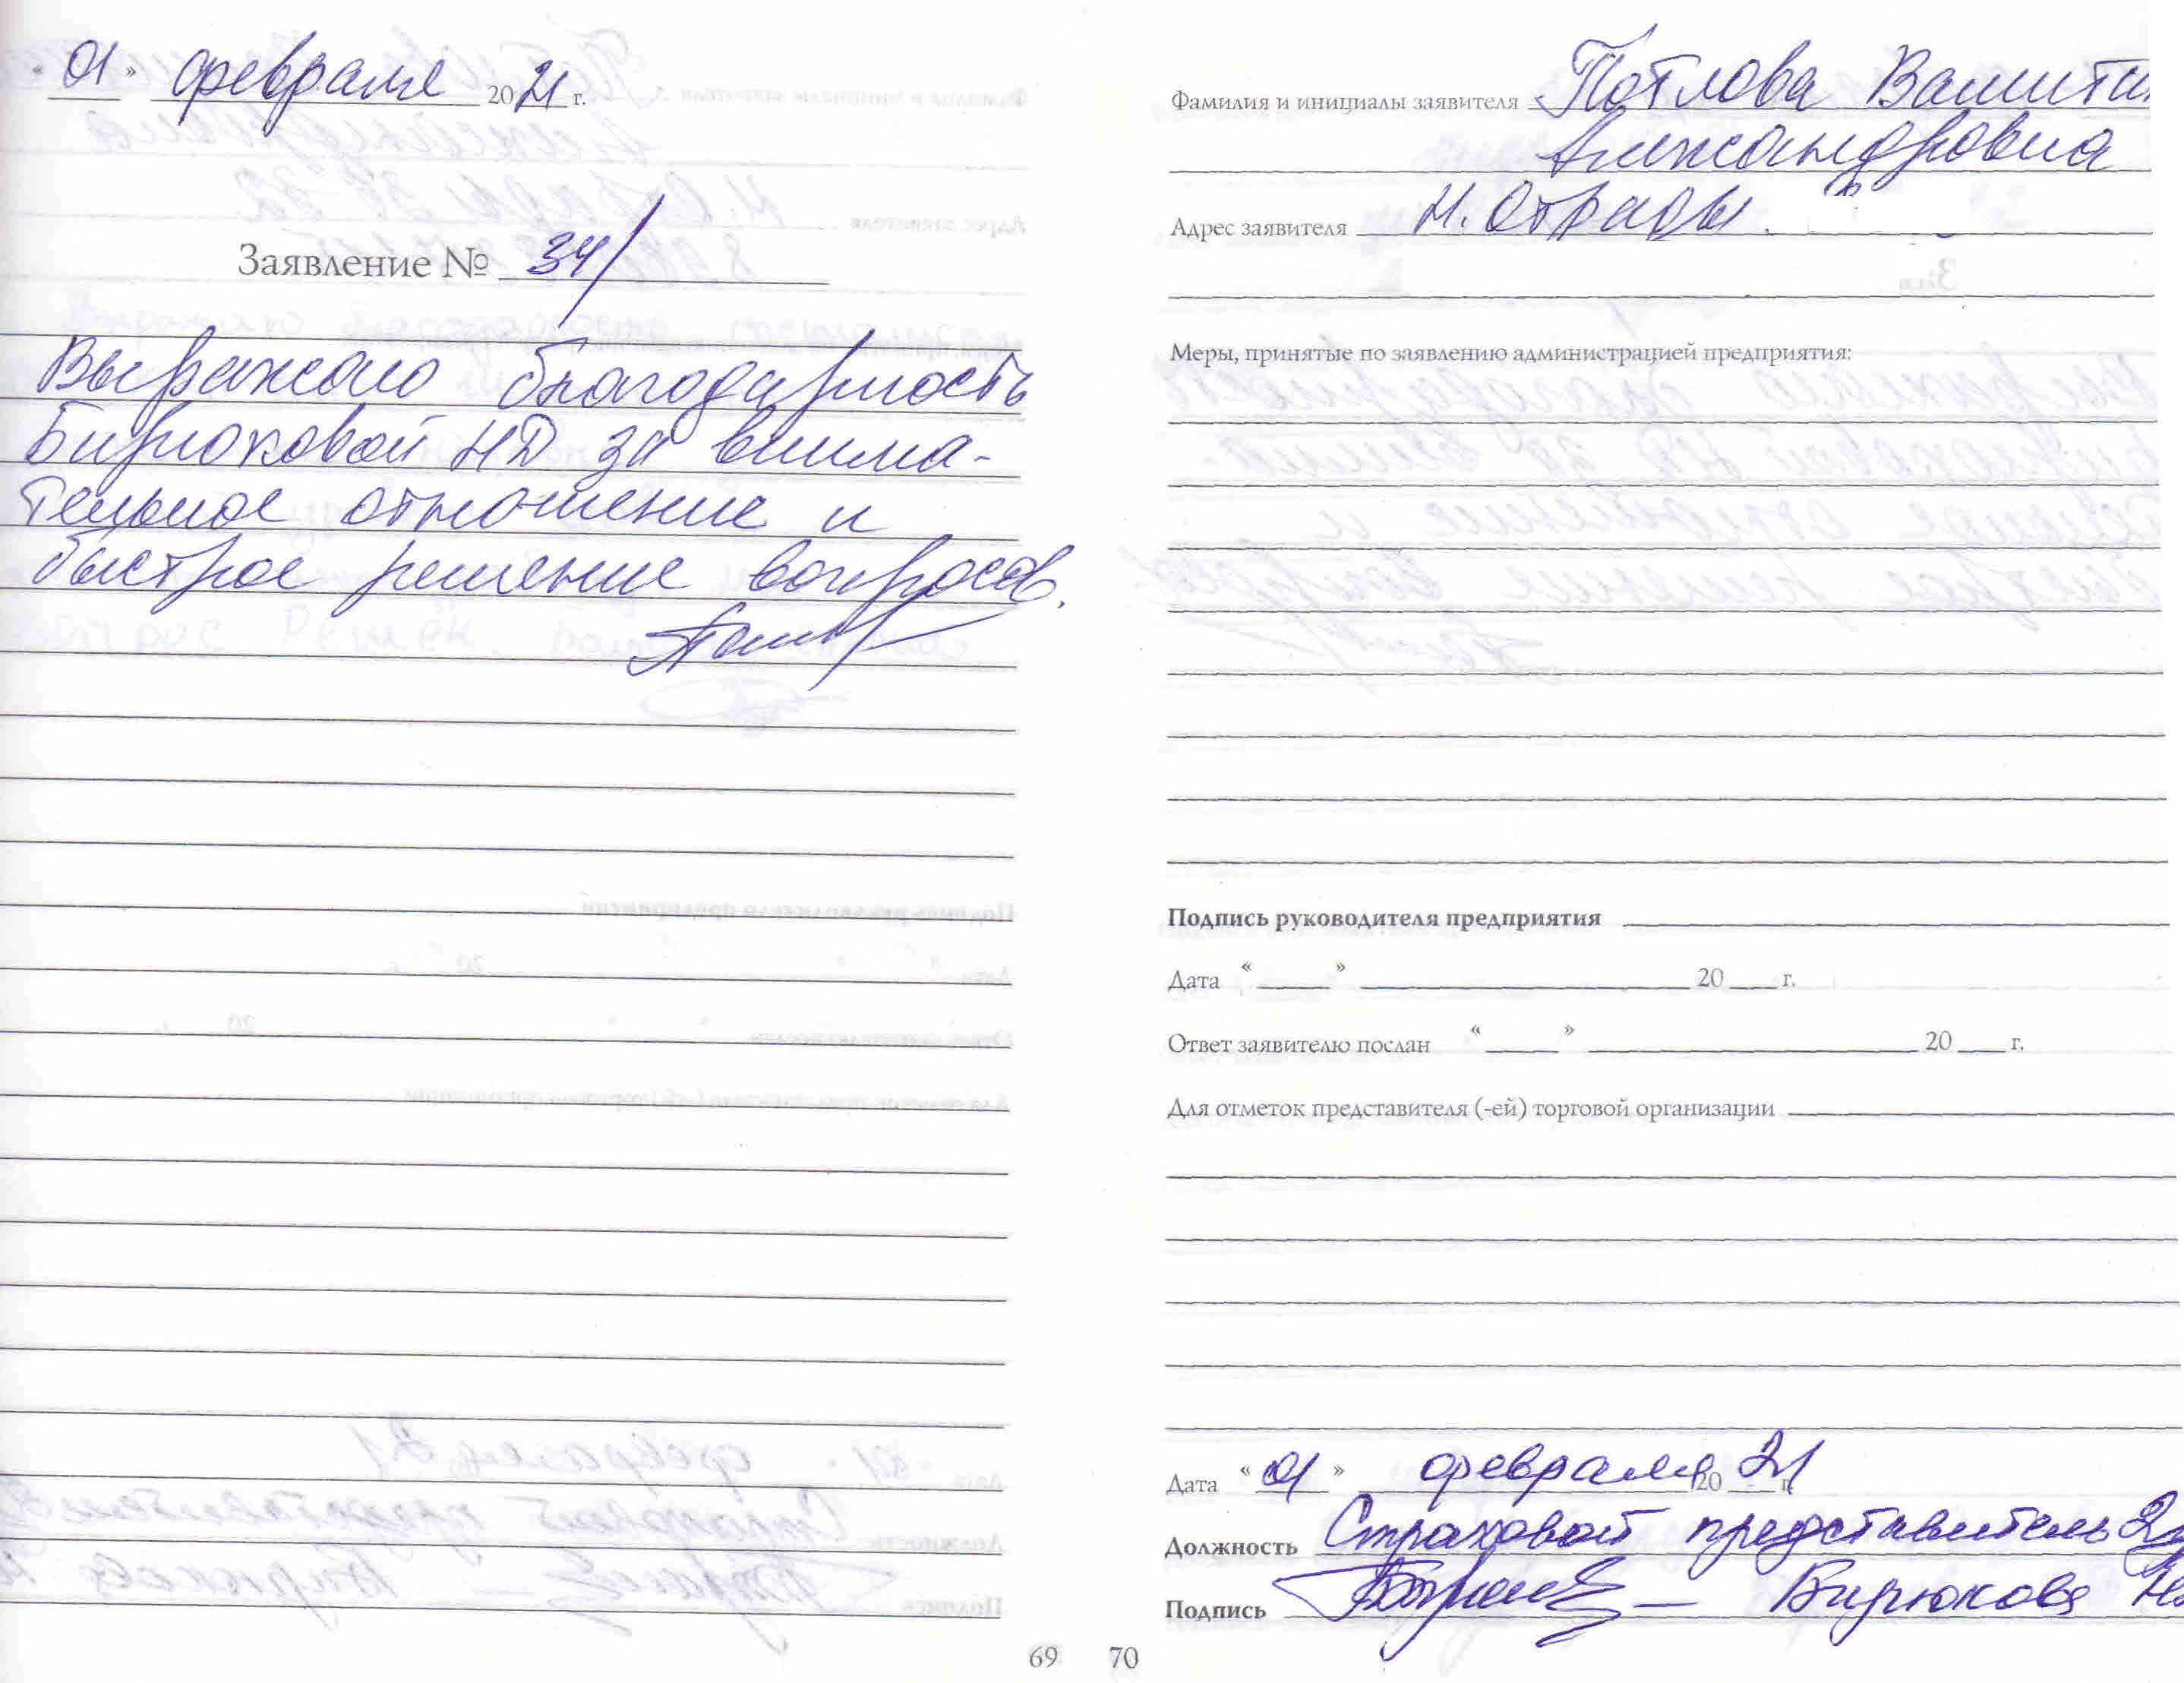 « 01 » февраля 2021 г.
Заявление № 34/
Выражаю благодарность
Бирюковой НД за внима-
тельное отношение и
быстрое решение вопросов.
69
Фамилия и инициалы заявителя Потлова Валити
Александровна
Адрес заявителя Н. Отрады.
Меры, принятые по заявлению администрацией предприятия:
Подпись руководителя предприятия
Дата “ ” 20 г.
Ответ заявителю послан “ ” 20 г.
Для отметок представителя (-ей) торговой организации
Дата “ 01 ” февраля 2021 г.
Должность Страховой представитель
Подпись — Бирюкова
70